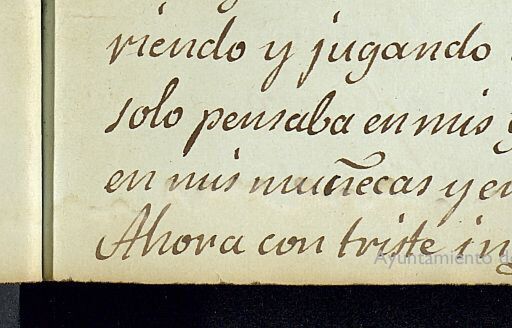 riendo y jugando
solo pensaba en mis
en mis muñecas y en
Ahora con triste
Ayuntamiento de